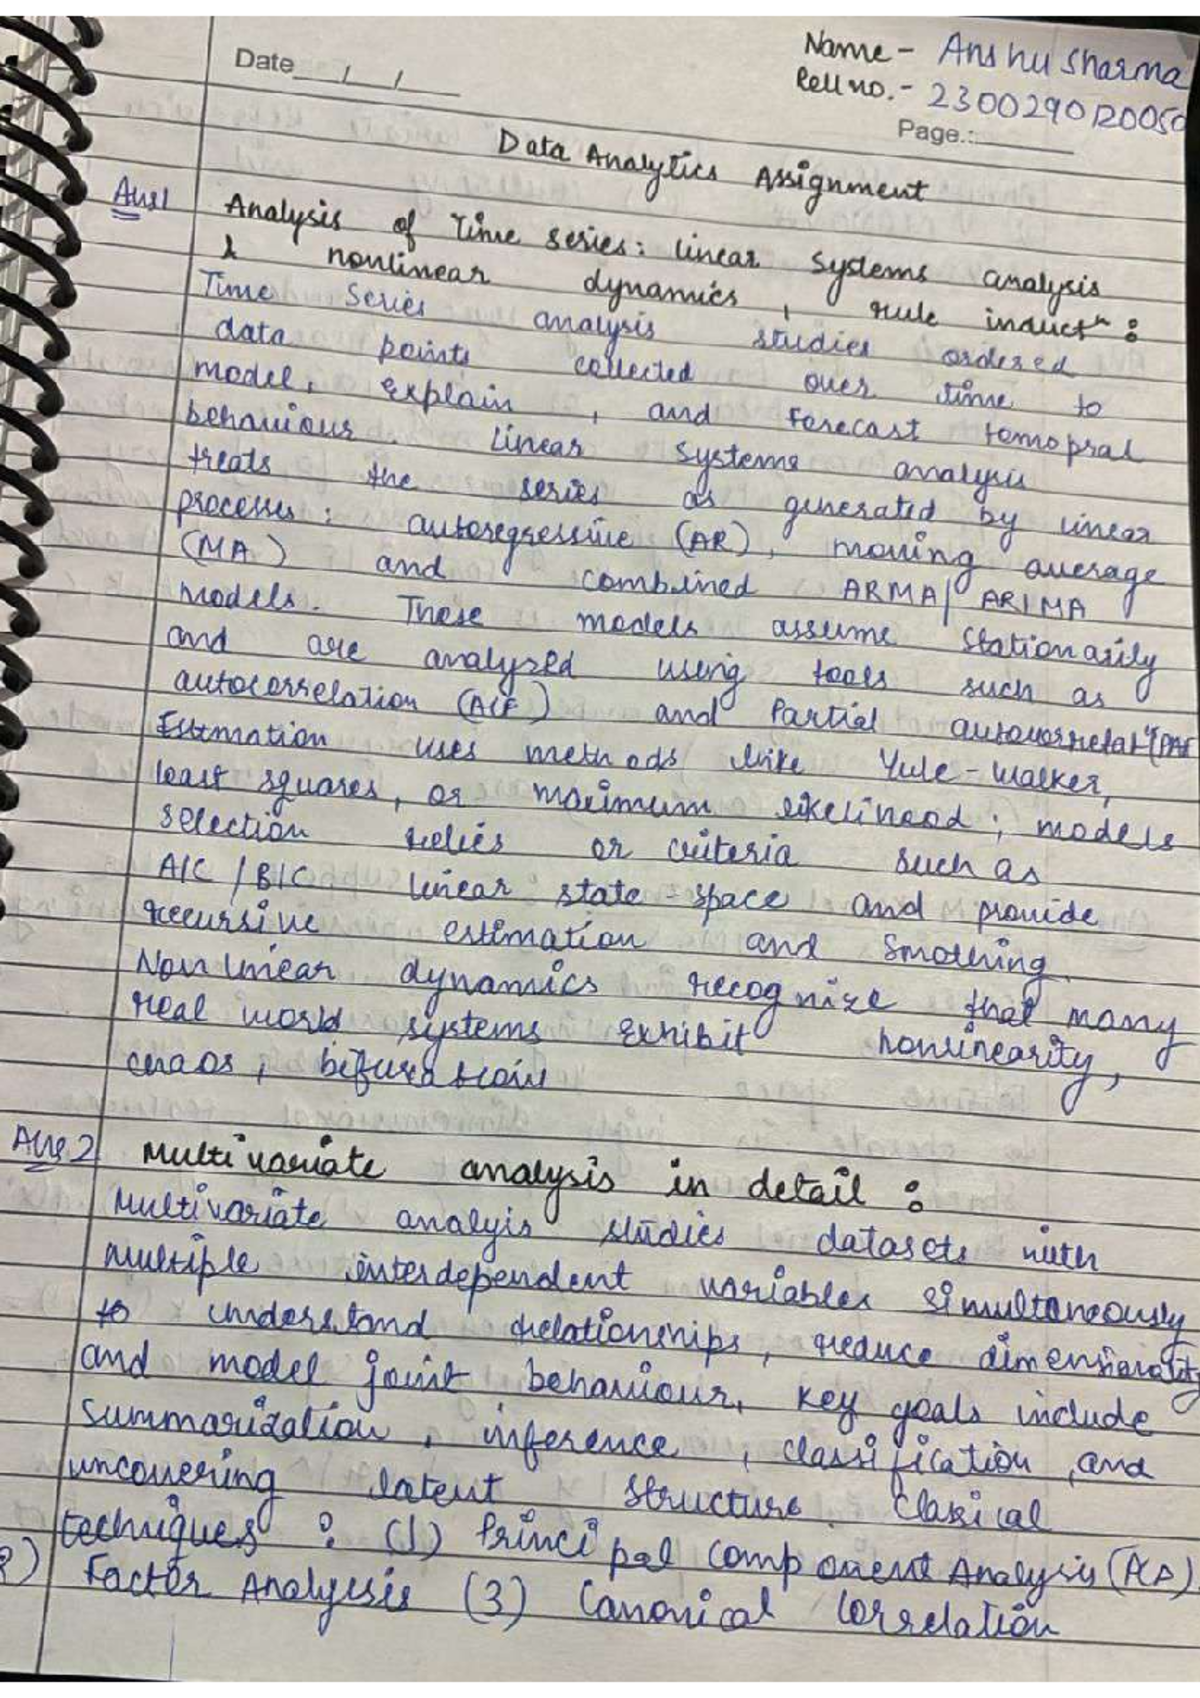 Name - Anshu Sharma
Date / /
Roll no. - 2300290120050
Page.:
Data Analytics Assignment
Ans1 Analysis of Time series: linear systems analysis
& nonlinear dynamics, rule inductn :
Time Series analysis studies ordered
data points collected over time to
model, explain, and forecast temopral
behaviour. Linear systems analysis
treats the series as generated by linear
processes: autoregressive (AR), moving average
(MA) and combined ARMA/ARIMA
models. These models assume stationarily
and are analyzed using tools such as
autocorrelation (ACF) and Partial
Estimation uses methods like Yule-Walker,
least squares, or maximum likelihood; models
selection relies or criteria such as
AIC/BIC linear state-space and provide
recursive estimation and Smothing.
Non linear dynamics recognize that many
real world systems exhibit nonlinearity,
chaos,
Ans 2 Multivariate analysis in detail :
Multivariate analyis studies datasets with
multiple interdependent variables simultaneously
to understand relationships, reduce dimensionality
and model joint behaviour, key goals include
summarization, inference, classification, and
uncovering latent structure. Clasical
techniques : (1) Principal Component Analysis (PCA)
2) Factor Analysis (3) Canonical Correlation